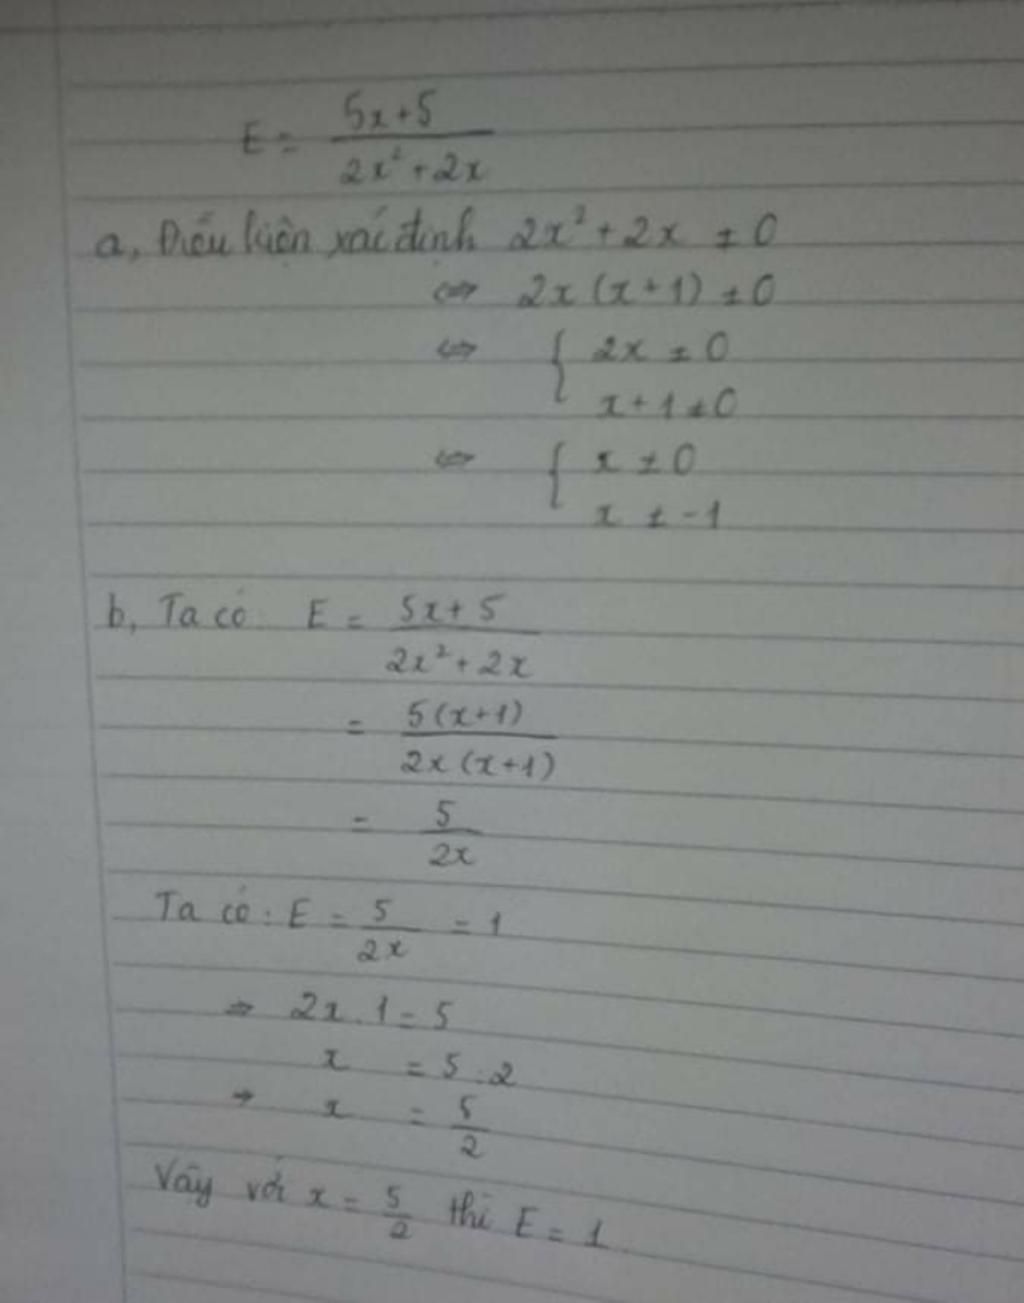 E = (5x+5)/(2x²+2x)
a, Điều kiện xác định 2x² + 2x ≠ 0
⇔ 2x(x+1) ≠ 0
⇔ { 2x ≠ 0
x+1 ≠ 0
⇔ { x ≠ 0
x ≠ -1
b, Ta có E = (5x+5)/(2x²+2x)
= 5(x+1)/2x(x+1)
= 5/2x
Ta có: E = 5/2x = 1
⇒ 2x.1 = 5
x = 5:2
→ x = 5/2
Vậy với x = 5/2 thì E = 1